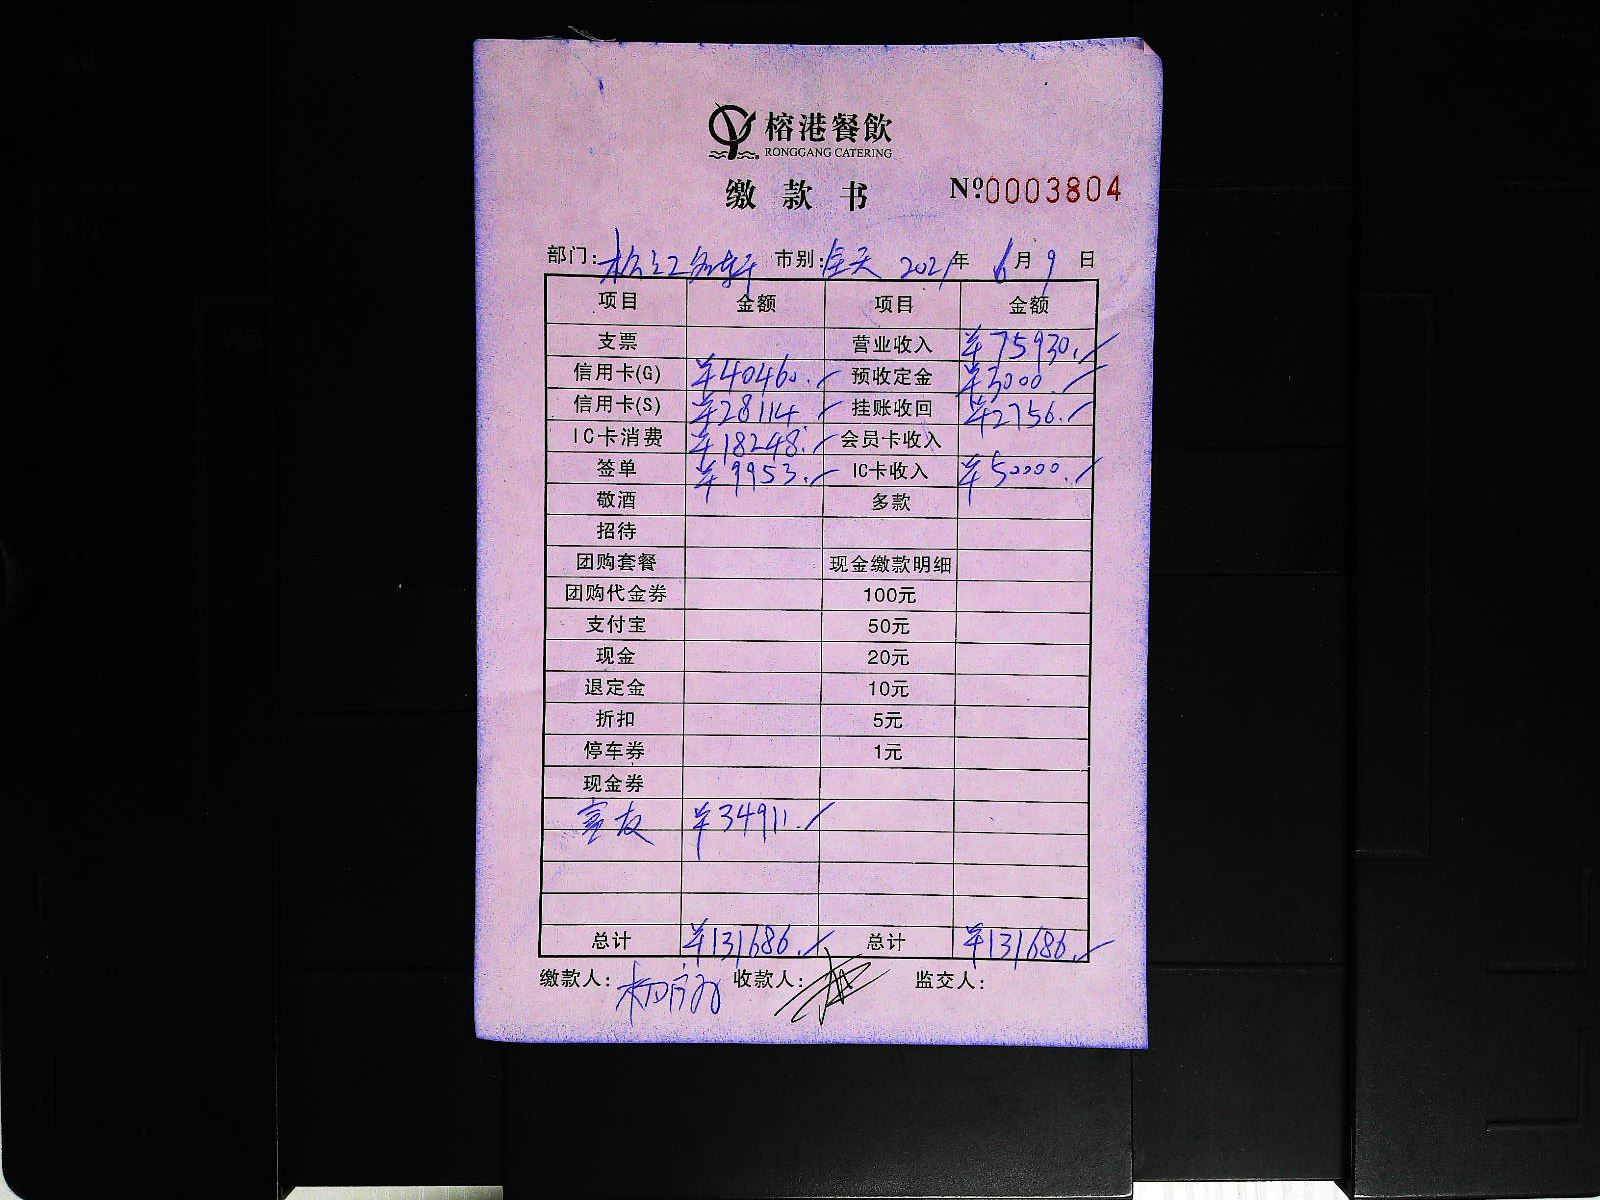 榕港餐飲
RONGGANG CATERING
缴款书 Nº0003804
部门: 松江名轩 市别: 全天 2021年 6月 9日
项目 金额 项目 金额
支票 营业收入 ¥75930.
信用卡(G) ¥40460. 预收定金 ¥3000.
信用卡(S) ¥28114 挂账收回 ¥2756.
IC卡消费 ¥18248. 会员卡收入
签单 ¥9953. IC卡收入 ¥50000.
敬酒 多款
招待
团购套餐 现金缴款明细
团购代金券 100元
支付宝 50元
现金 20元
退定金 10元
折扣 5元
停车券 1元
现金券
富友 ¥34911.
总计 ¥131686. 总计 ¥131686.
缴款人: 收款人: 监交人: